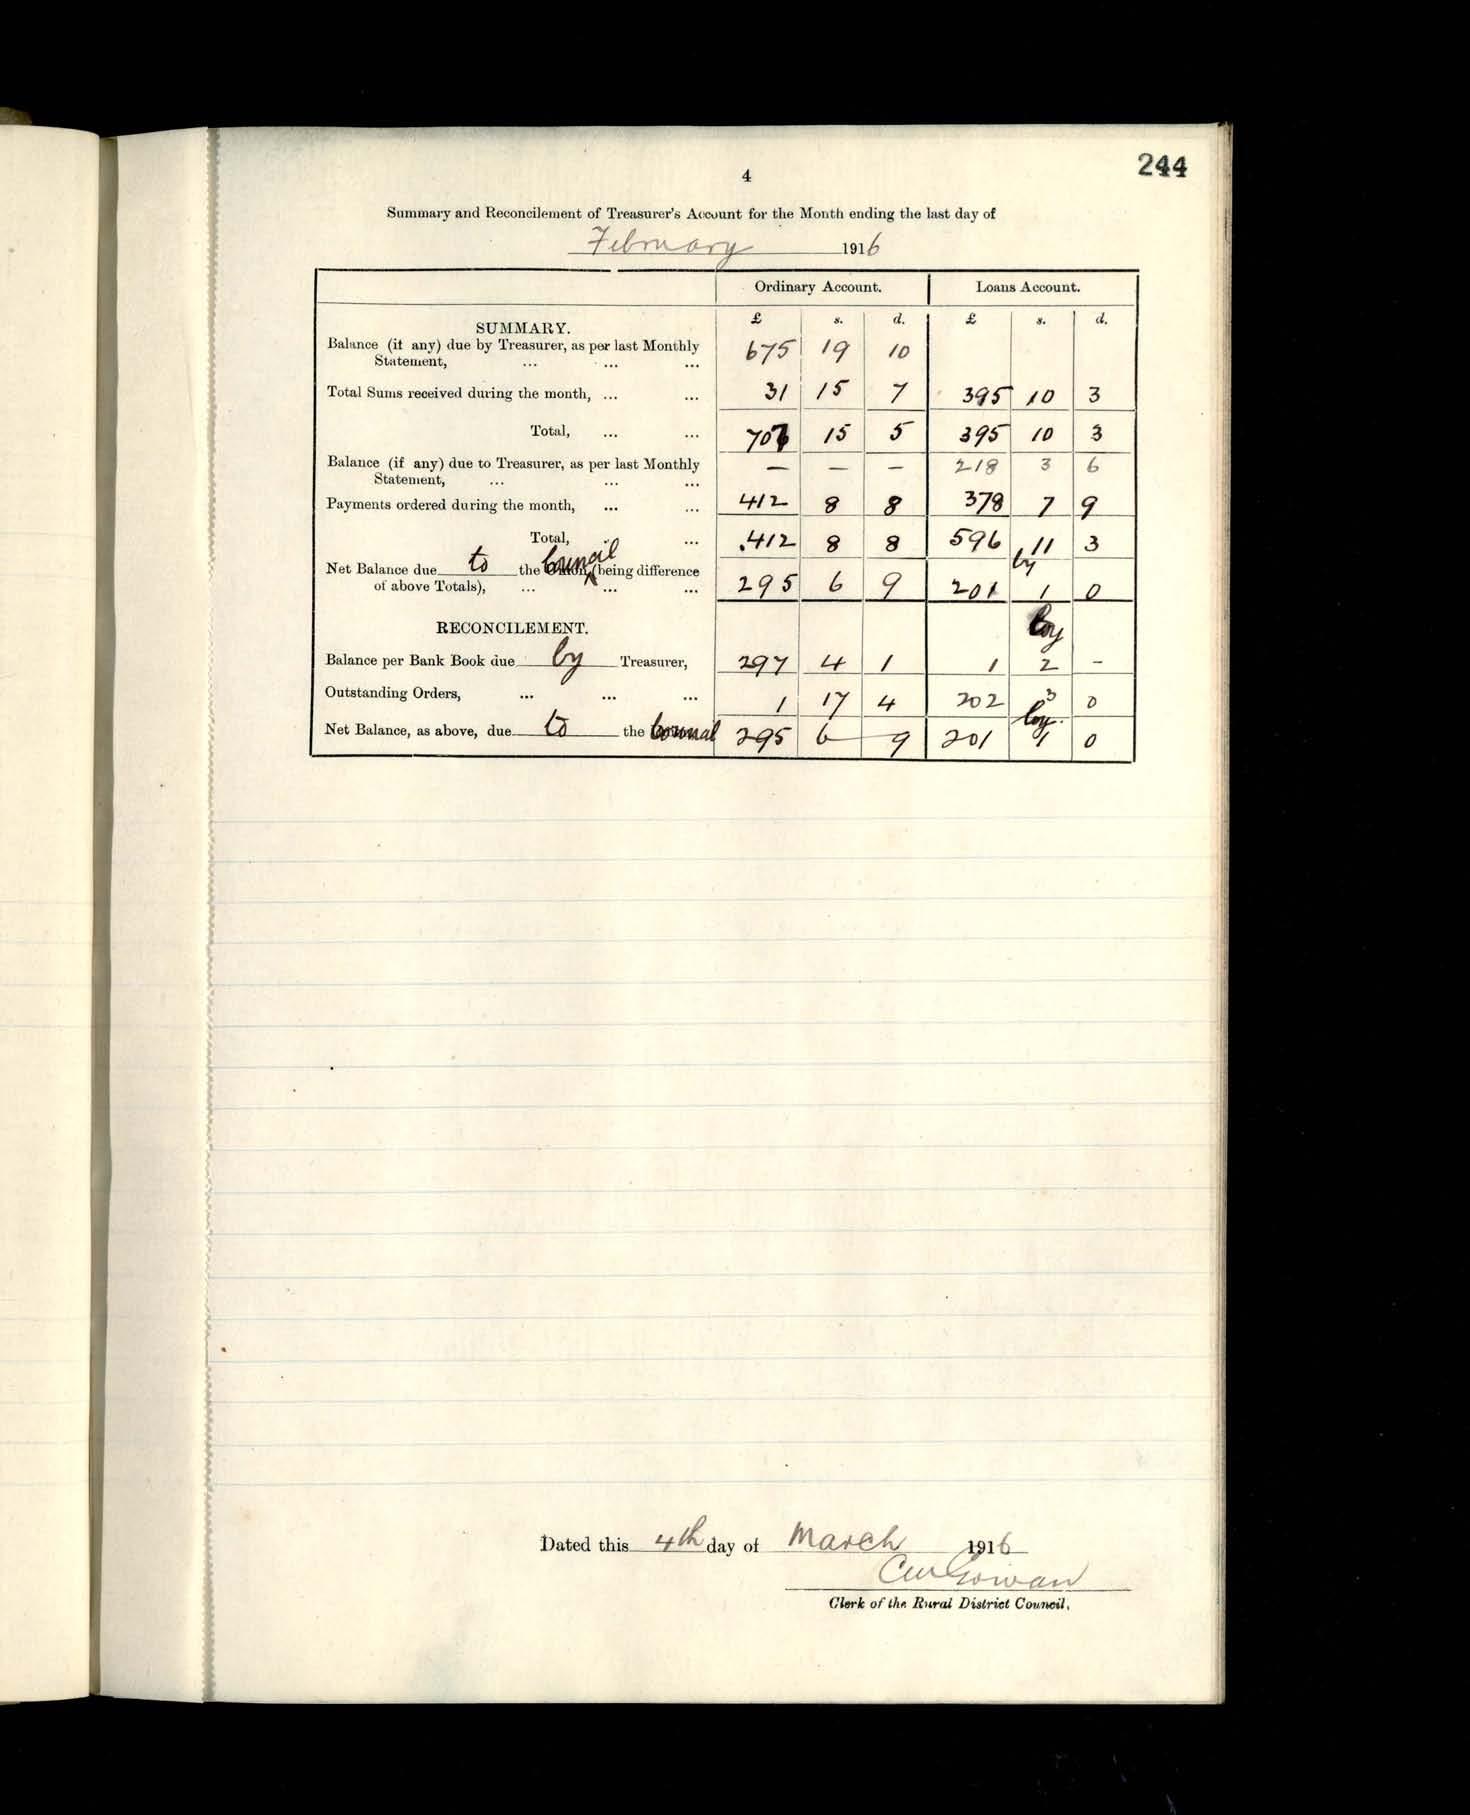 244
4
Summary and Reconcilement of Treasurer's Account for the Month ending the last day of
February 1916
Ordinary Account. Loans Account.
£ s. d. £ s. d.
SUMMARY.
Balance (if any) due by Treasurer, as per last Monthly
Statement, ... ... ... 675 19 10
Total Sums received during the month, ... ... 31 15 7 395 10 3
Total, ... ... 707 15 5 395 10 3
Balance (if any) due to Treasurer, as per last Monthly
Statement, ... ... ... — — — 218 3 6
Payments ordered during the month, ... ... 412 8 8 378 7 9
Total, ... ... 412 8 8 596 11 3
Net Balance due to the Council (being difference by
of above Totals), ... ... ... 295 6 9 201 1 0
RECONCILEMENT. by
Balance per Bank Book due by Treasurer, 297 4 1 1 2 -
Outstanding Orders, ... ... ... 1 17 4 202 3 0
by
Net Balance, as above, due to the Council 295 6 9 201 1 0
Dated this 4th day of March 1916
Gowan
Clerk of the Rural District Council.